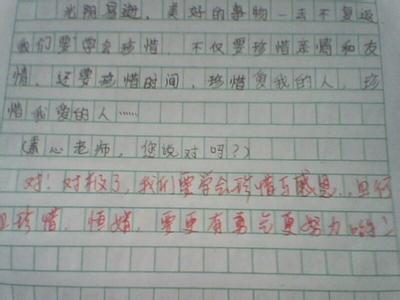 光阴易逝，美好的事物一去不复返
我们要学会珍惜，不仅要珍惜亲情和友
情，还要珍惜时间，珍惜爱我的人，珍
惜我爱的人……
(素心老师，您说对吗？)
对！对极了，我们要学会珍惜与感恩…
珍惜，恒婧，要更有勇气更努力哟！